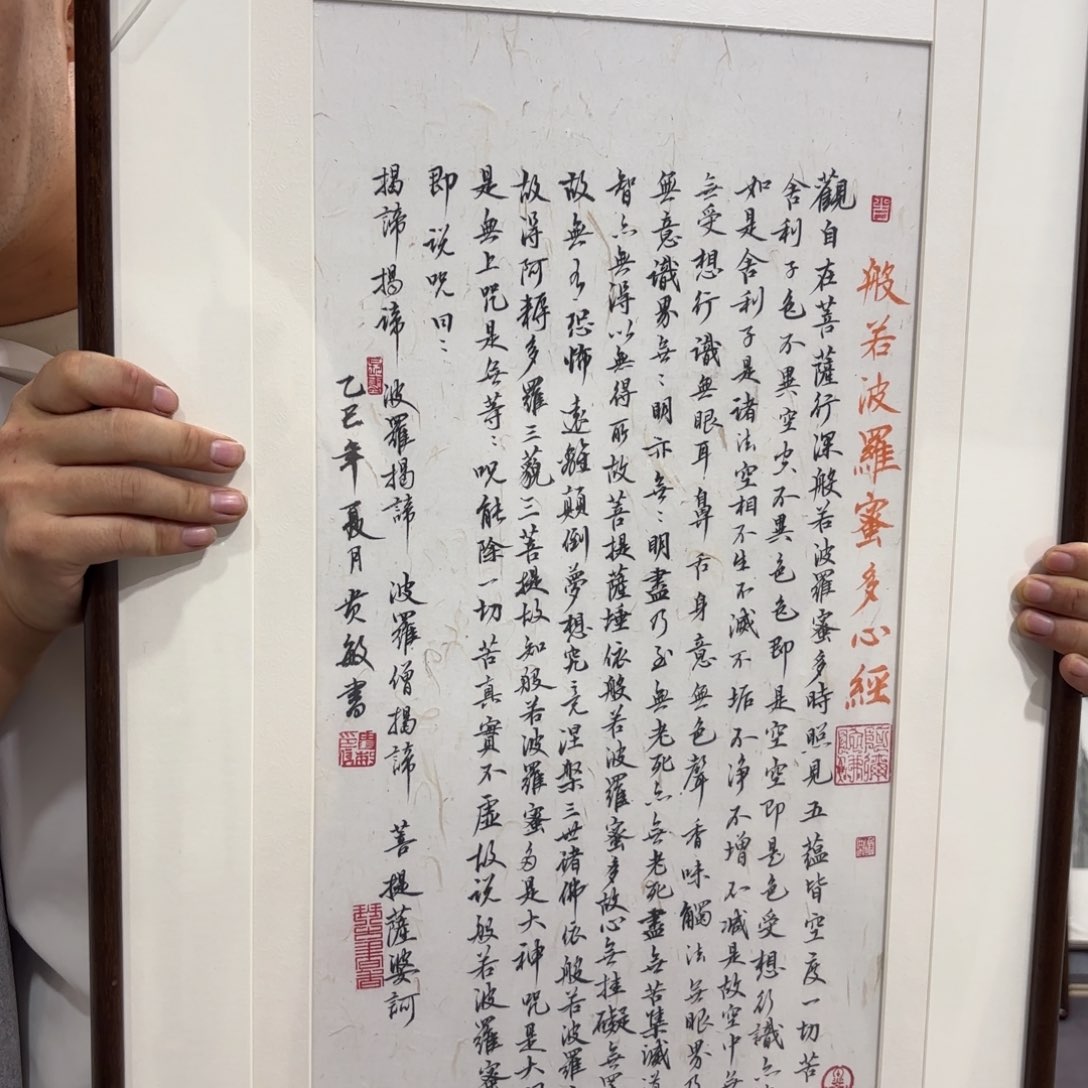 般若波羅蜜多心經
觀自在菩薩行深般若波羅蜜多時照見五蘊皆空度一切苦
舍利子色不異空空不異色色即是空空即是色受想行識亦
如是舍利子是諸法空相不生不滅不垢不净不增不减是故空中無
無受想行識無眼耳鼻舌身意無色聲香味觸法無眼界乃
無意識界無〻明亦無〻明盡乃至無老死亦無老死盡無苦集滅道
智亦無得以無得所故菩提薩埵依般若波羅蜜多故心無挂礙無罣
故無有恐怖遠離顛倒夢想究竟涅槃三世諸佛依般若波羅
故得阿耨多羅三藐三菩提故知般若波羅蜜多是大神咒是大明
是無上咒是無等〻咒能除一切苦真實不虛故说般若波羅蜜
即说咒曰：
揭諦 揭諦 波羅揭諦 波羅僧揭諦 菩提薩婆訶
乙巳年夏月贵敏書